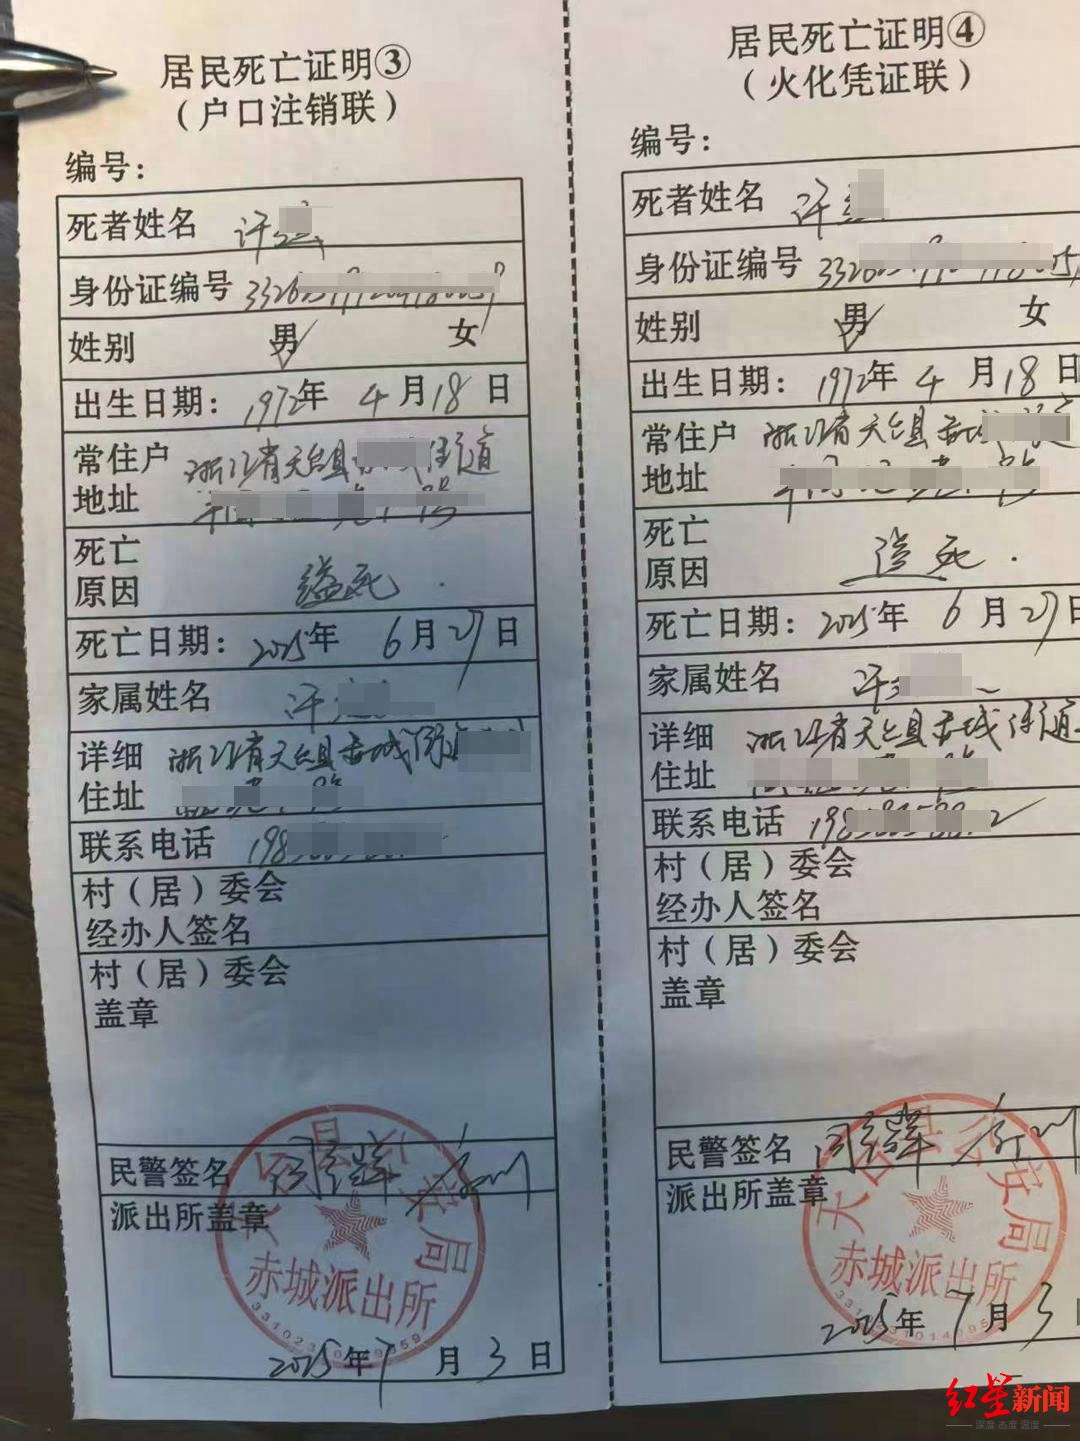 居民死亡证明③
（户口注销联）
编号：
死者姓名 许
身份证编号
性别 男 女
出生日期：1972年 4月18日
常住户 浙江省天台县 城街道
地址
死亡
原因 缢死
死亡日期：2025年 6月27日
家属姓名 许
详细 浙江省天台县赤城街道
住址
联系电话
村（居）委会
经办人签名
村（居）委会
盖章
民警签名
派出所盖章
天台县公安局
赤城派出所
2025年7月3日
居民死亡证明④
（火化凭证联）
编号：
死者姓名 许
身份证编号
性别 男 女
出生日期：1972年 4月18日
常住户 浙江省天台县赤城
地址
死亡
原因 缢死
死亡日期：2025年 6月27日
家属姓名 许
详细 浙江省天台县赤城街道
住址
联系电话
村（居）委会
经办人签名
村（居）委会
盖章
民警签名
派出所盖章
天台县公安局
赤城派出所
2025年7月3日
红星新闻
深度 态度 温度